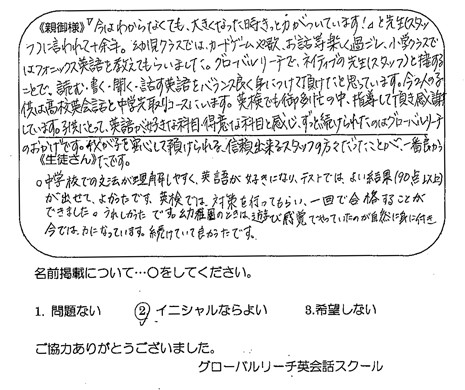 《親御様》『今はわからなくても、大きくなった時きっと力がついています!』と先生(スタッ
フ)に言われて十余年。幼児クラスでは、カードゲームや歌、お話等楽しく過ごし、小学クラスで
はフォニックス英語を教えてもらいました。グローバルリーチで、ネイティブの先生(スタッフ)と接する
ことで、読む・書く・聞く・話す英語をバランス良く身につけて頂けたと思っています。今2人の子
供は高校英会話と中学英取りコースにいます。英検でも御多忙の中、指導して頂き感謝
しています。子供にとって、英語が好きな科目・得意な科目と感じ、ずっと続けられたのはグローバルリーチ
のおかげです。我が子を安心して預けられる、信頼出来るスタッフの方々だったことが、一番良かっ
たです。
《生徒さん》
○中学校での文法が理解しやすく、英語が好きになり、テストでは、よい結果(90点以上)
が出せて、よかったです。英検では、対策を行ってもらい、一回で合格することが
できました。うれしかったです。幼稚園のときは、遊び感覚でやっていたのが自然に身に付き
今では、力になっています。続けていて良かったです。
名前掲載について…○をしてください。
1. 問題ない ② イニシャルならよい 3.希望しない
ご協力ありがとうございました。
グローバルリーチ英会話スクール